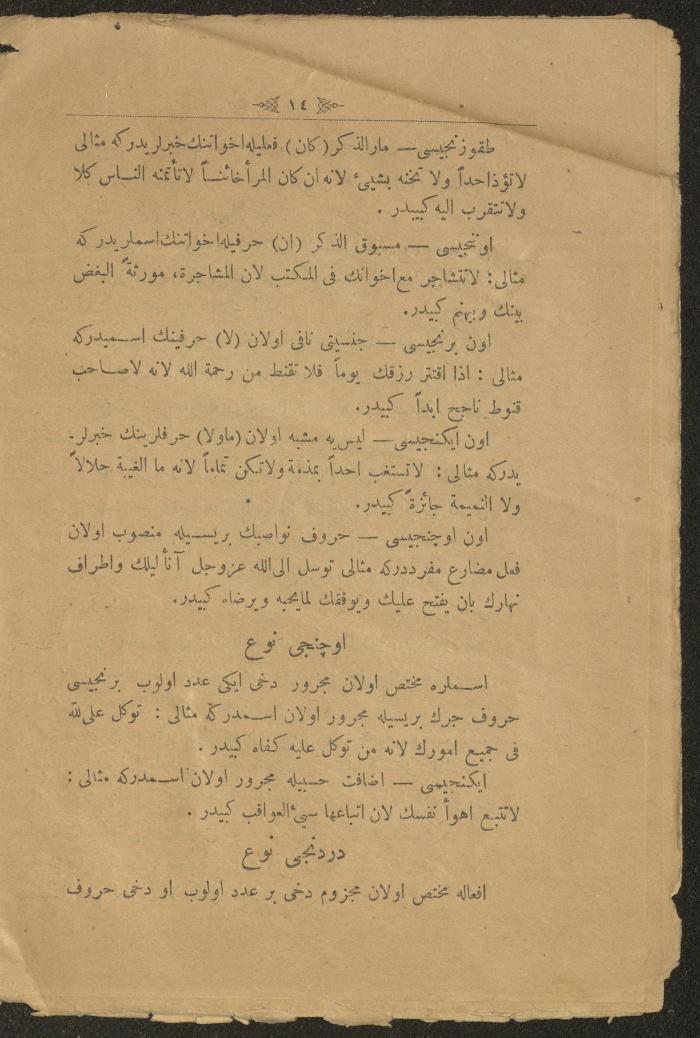 ١٤
طقوزنجيسى — مارالذكر (كان) فعليله اخواتنك خبرلريدركه مثالى
لاتؤذ احداً ولا تخنه بشيئ لانه ان كان المرأ خائنــاً لاتأتمنه النــاس كلا
ولا تتقرب اليه كبيدر .
اوننجيسى — مسبوق الذكر (ان) حرفيله اخواتنك اسملريدركه
مثالى : لاتتشاجر مع اخوانك فى المكتب لان المشاجرة، مورثةً البغض
بينك وبينهم كبيدر.
اون برنجيسى — جنسيتى نافى اولان (لا) حرفينك اســميدركه
مثالى : اذا اقتتر رزقك يوماً فلا تقنط من رحمة الله لانه لاصــاحب
قنوط ناجح ابداً كبيدر.
اون ايكنجيسى — ليس يه مشبه اولان (ماولا) حرفلرينك خبرلر-
يدركه مثالى : لاتستغب احداً بمذمة ولاتكن تماماً لانه ما الغيبة حلالاً
ولا النميمة جائزةً كبيدر.
اون اوچنجيسى — حروف نواصبك بريســيله منصوب اولان
فعل مضارع مفرددركه مثالى توسل الى الله عزوجل آنأ ليلك واطراف
نهارك بان يفتح عليك ويوفقك لمايحبه ويرضاه كبيدر.
اوچنجى نوع
اســملره مختص اولان مجرور دخى ايكى عدد اولوب برنجيسى
حروف جرك بريسيله مجرور اولان اسـمدركه مثالى : توكل على الله
فى جميع امورك لانه من توكل عليه كفاه كبيدر .
ايكنجيسى — اضافت حسبيله مجرور اولان اســمدركه مثالى :
لاتتبع اهوأ نفسك لان اتباعها سيئ العواقب كبيدر .
دردنجى نوع
افعاله مختص اولان مجزوم دخى بر عدد اولوب او دخى حروف